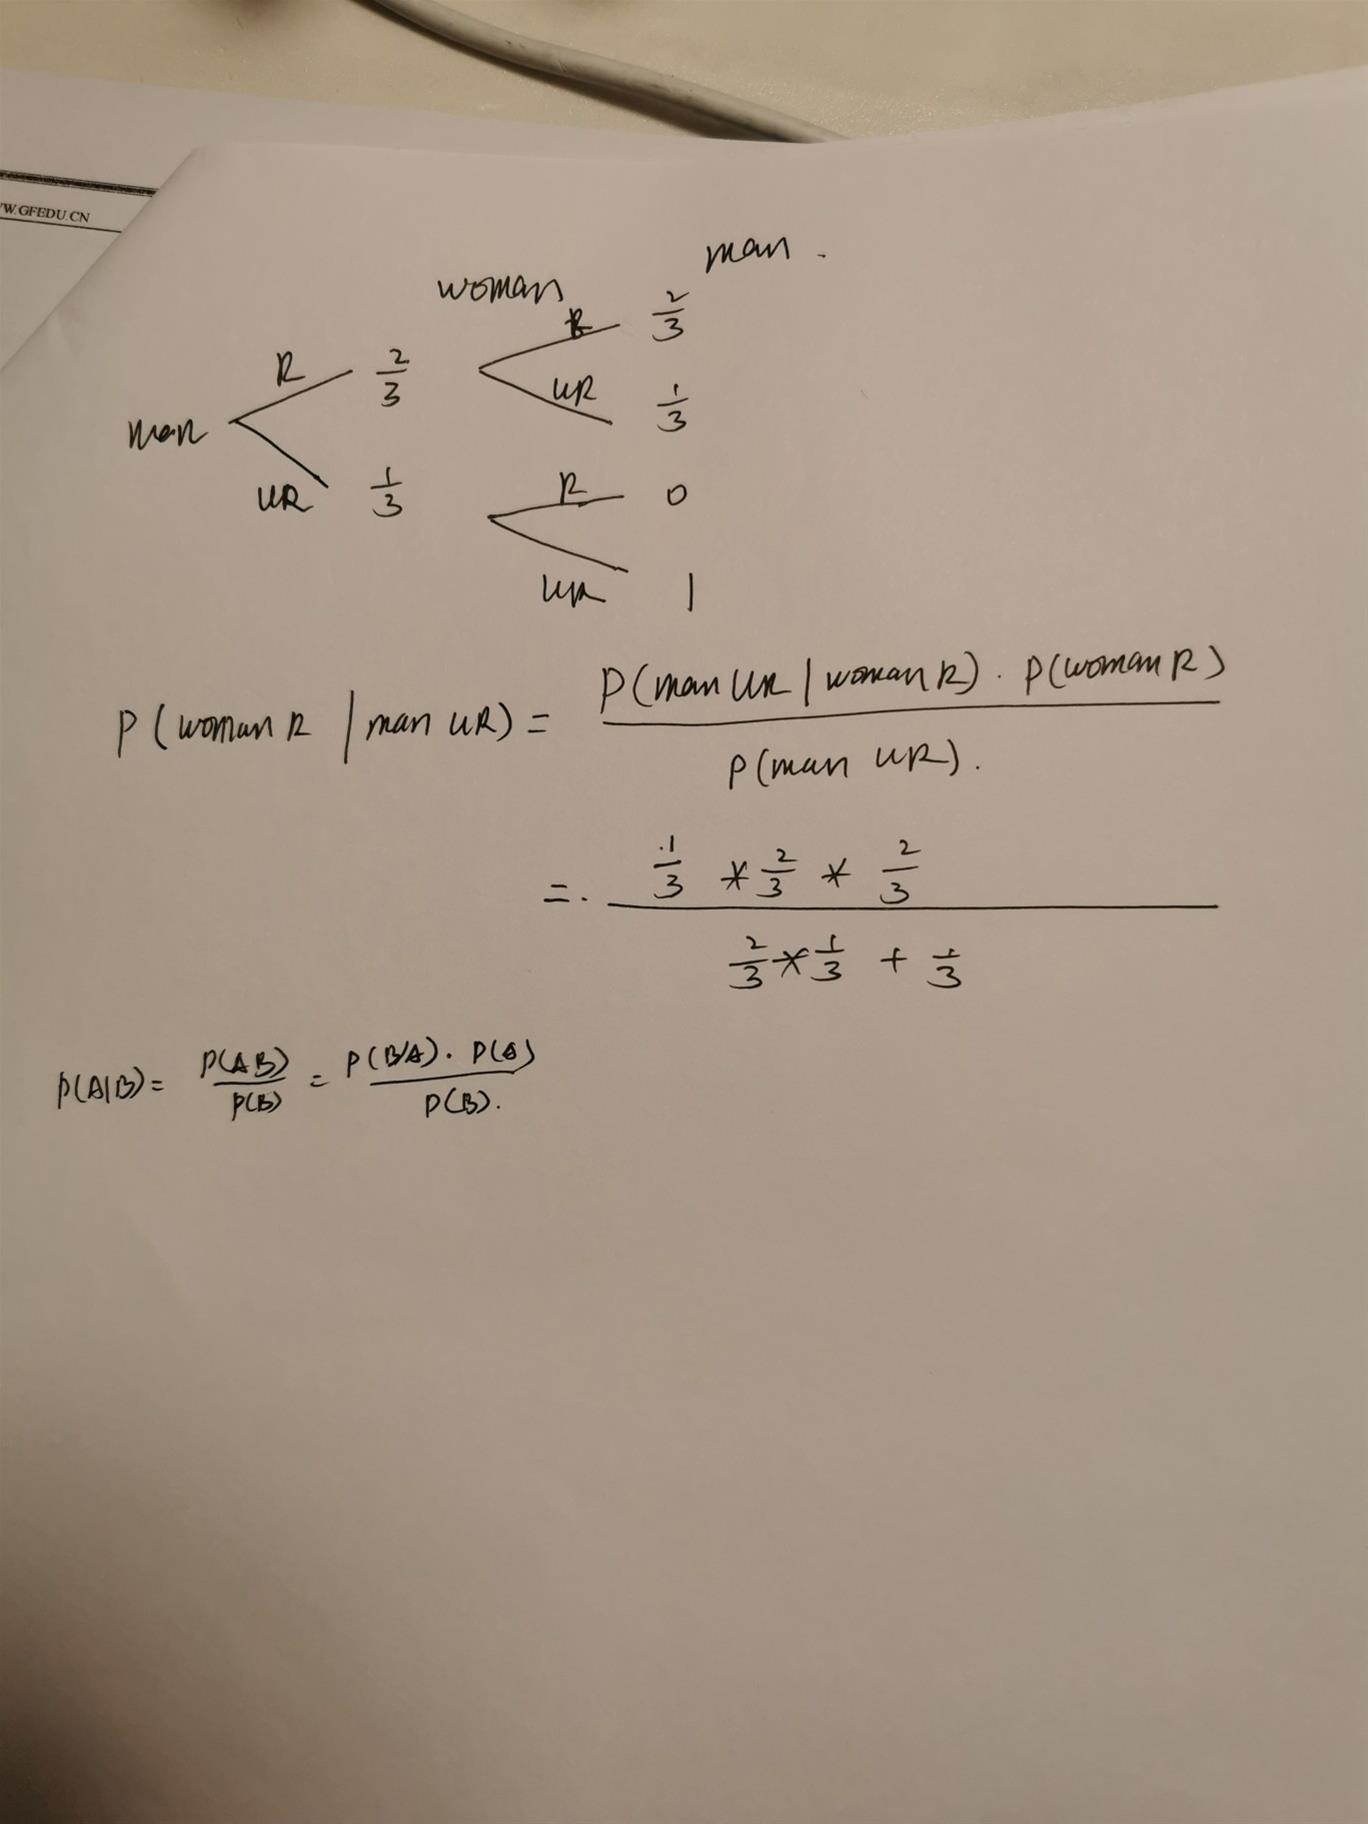 WWW.GFEDU.CN
woman man .
R 2/3 R 2/3
man UR 1/3
UR 1/3 R 0
UR 1
P(woman R | man UR) = P(man UR | woman R) . P(woman R) / P(man UR).
= 1/3 * 2/3 * 2/3 / 2/3 * 1/3 + 1/3
P(A|B) = P(AB)/P(B) = P(B/A) . P(A) / P(B).